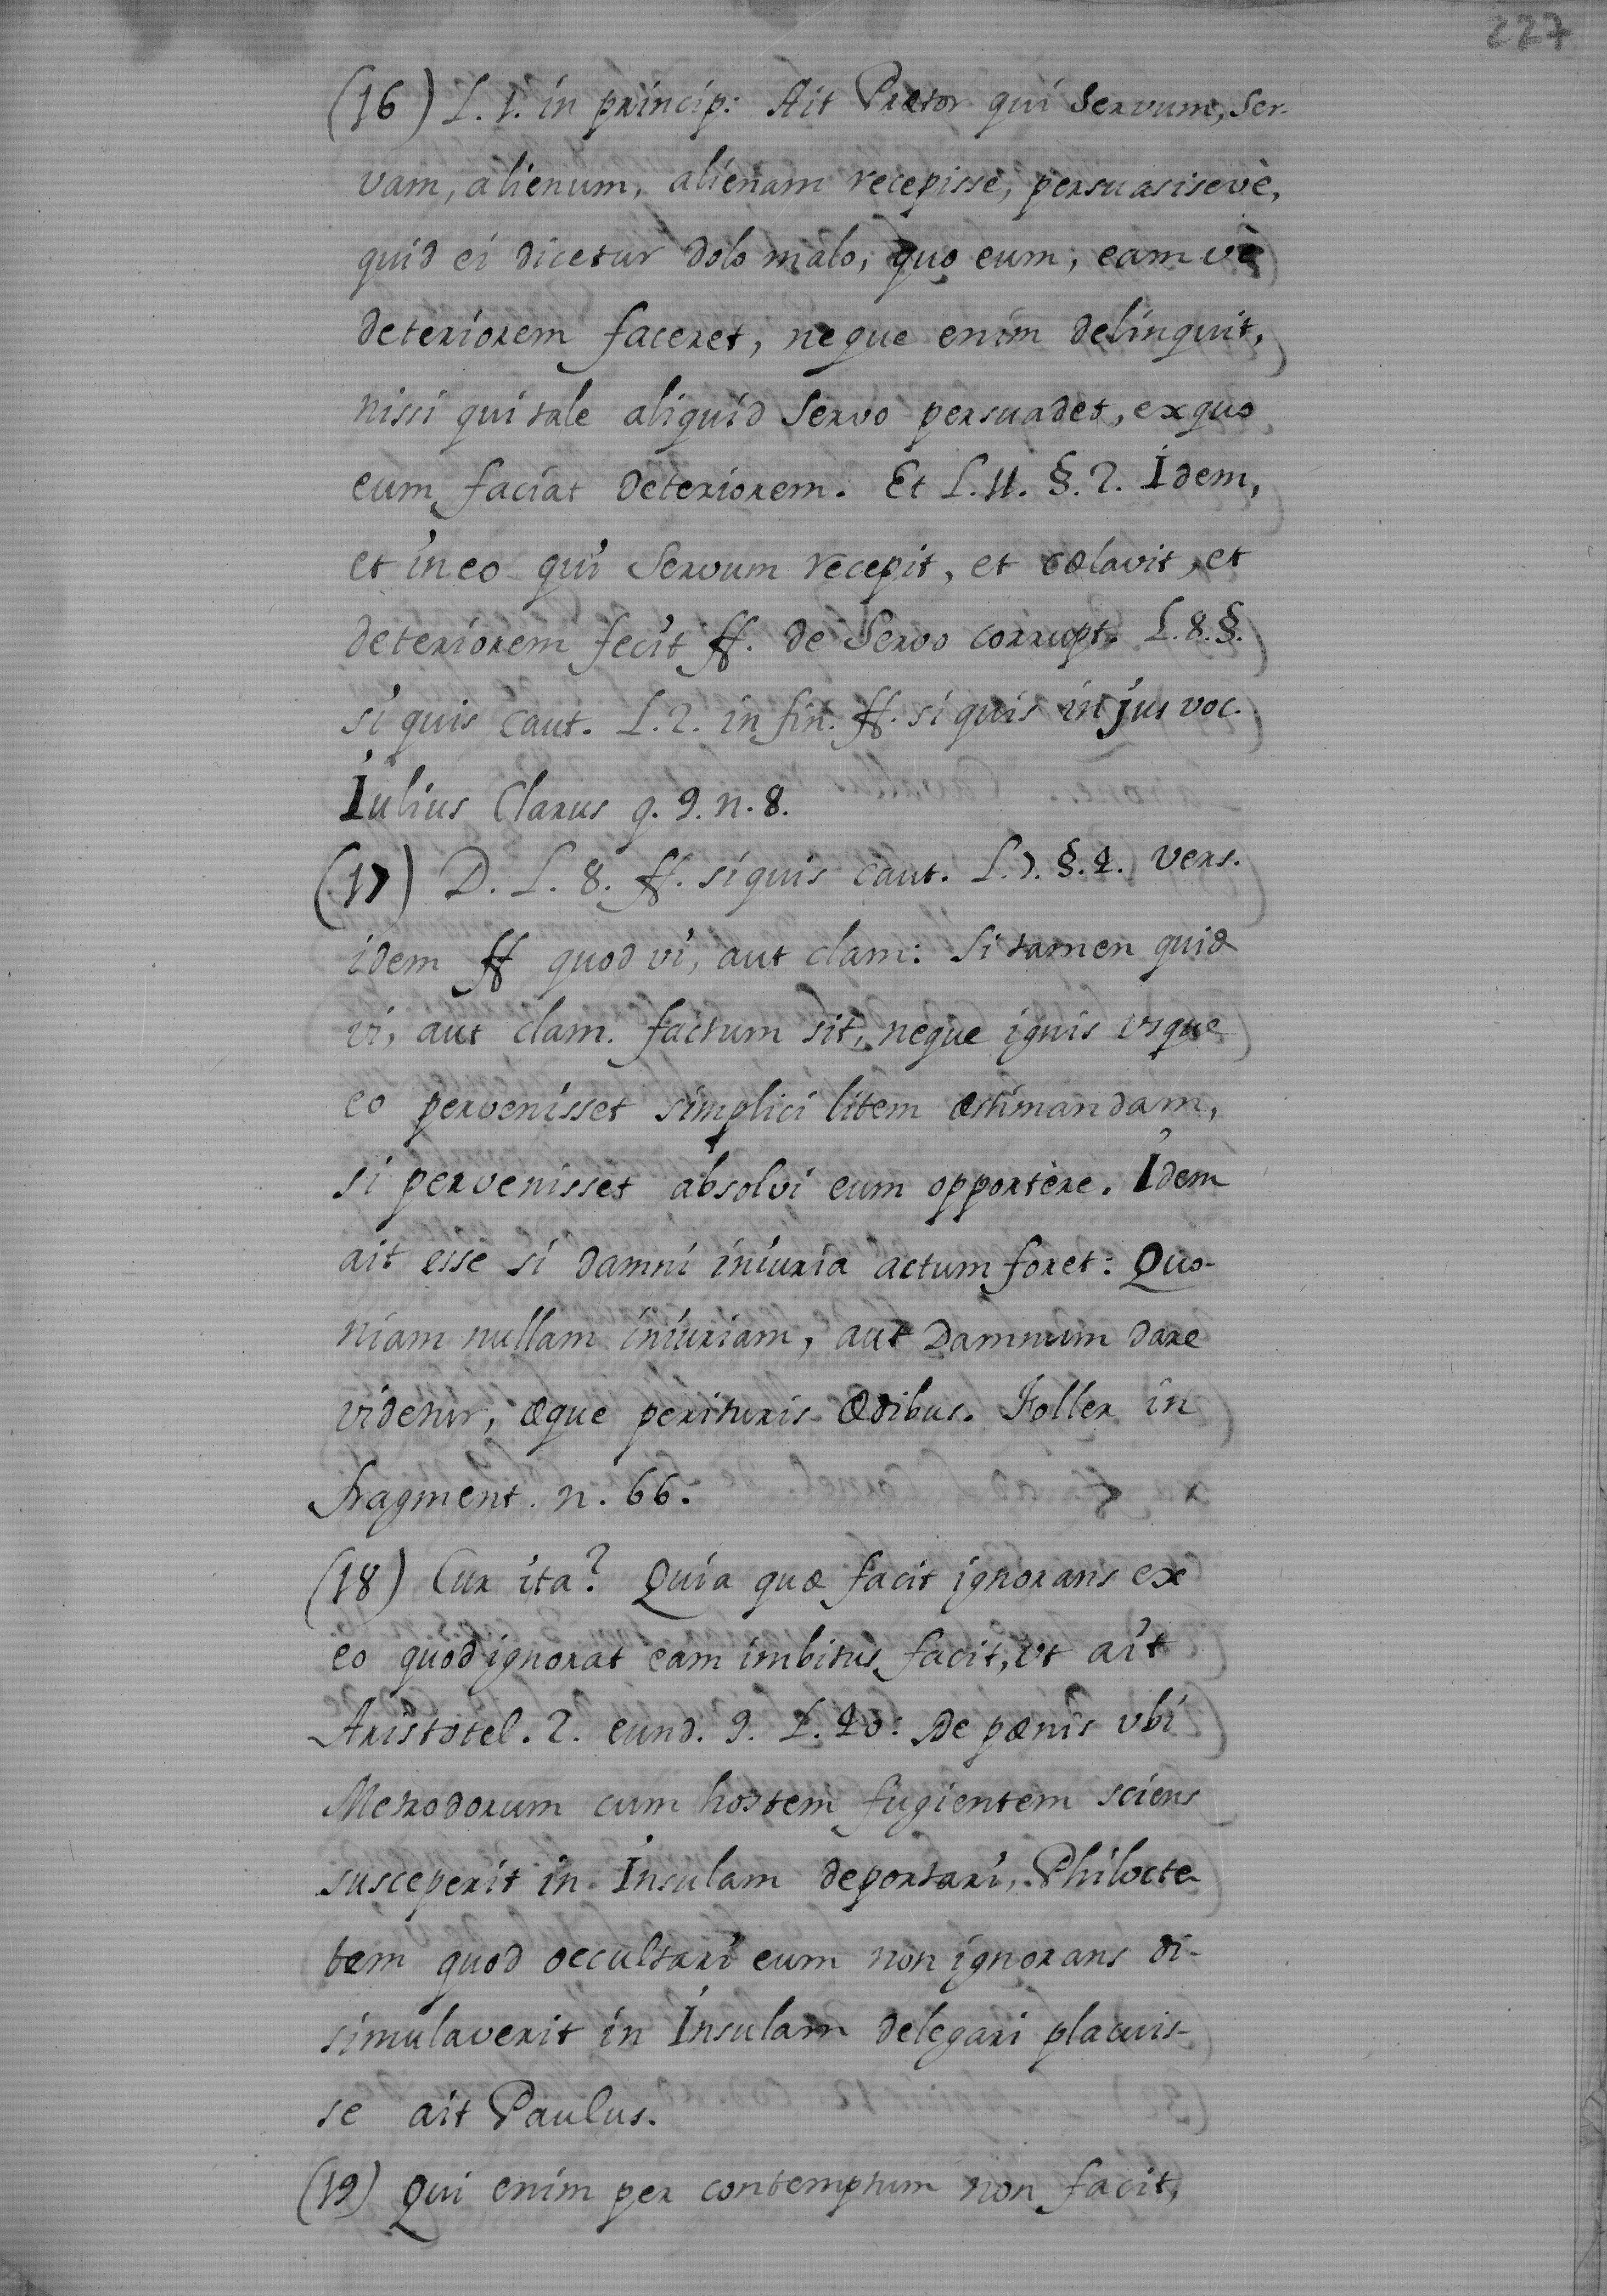 227
(16) L. 1. in princip: Ait Prætor qui Servum, Ser-
vam, alienum, alienam recepisse, persuasisevè,
quid ei dicetur dolo malo, quo eum, eam vè
deteriorem faceret, neque enim delinquit,
nissi qui tale aliquid Servo persuadet, ex quo
eum faciat deteriorem. Et L. 11. §. 2. Idem,
et in eo qui Servum recepit, et cælavit, et
deteriorem fecit ff. de Servo corrupt. L. 8. §.
si quis caut. L. 2. in fin. ff. si quis in jus voc.
Iulius Clarus q. 9. n. 8.
(17) D. L. 8. ff. si quis caut. L. 7. §. 4. vers.
idem ff quod vi, aut clam: Si tamen quid
vi, aut clam. factum sit, neque ignis vsque
eo pervenisset simplici litem æstimandam,
si pervenisset absolvi eum opportère. Idem
ait esse si damni iniuria actum foret: Quo-
niam nullam iniuriam, aut Damnum dare
videtur, æque perituris Ædibus. Holler in
fragment. n. 66.
(18) Cur ita? Quia quæ facit ignorans ex
eo quod ignorat eam imbitus facit, vt ait
Aristotel. 2. eund. 9. L. 40: De pænis vbi
Metrodorum cum hostem fugientem sciens
susceperit in Insulam deportari, Philocte-
tem quod occultari eum non ignorans di-
simulaverit in Insulam delegari placuis-
se ait Paulus.
(19) Qui enim per contemptum non facit,